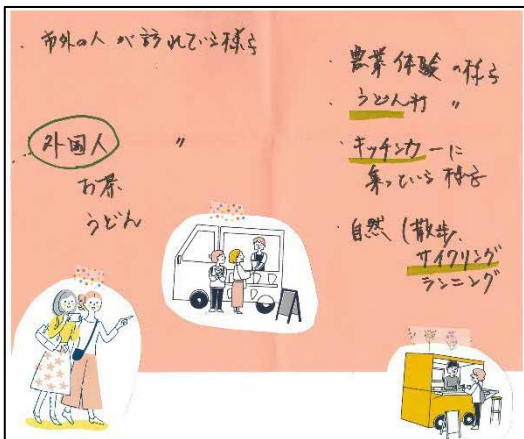 ・市外の人が訪れている様子
・外国人 〃
お茶
うどん
・農業体験の様子
・うどん打 〃
・キッチンカーに
集っている様子
・自然(散歩、
サイクリング
ランニング